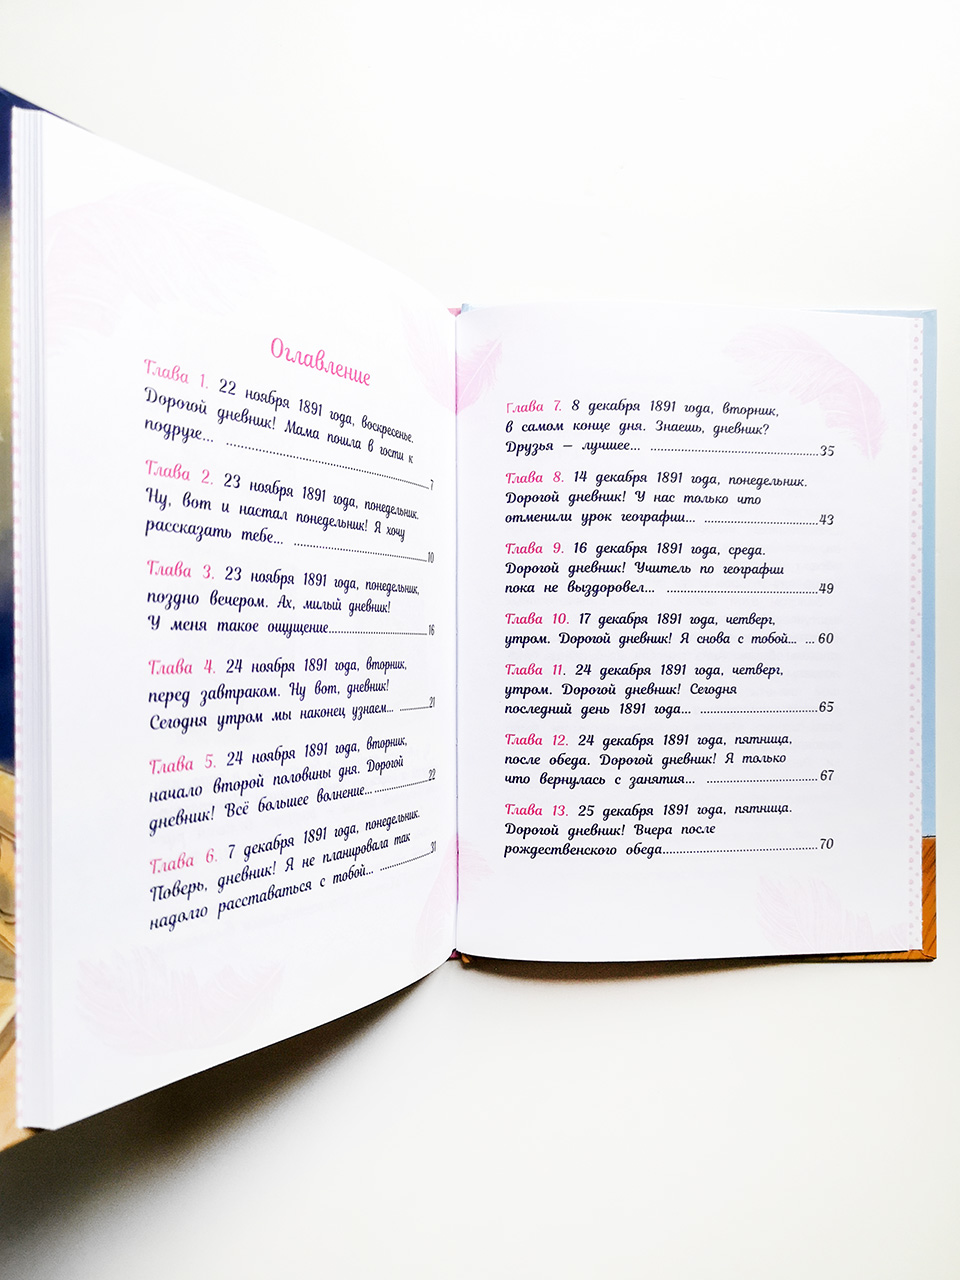 Оглавление
Глава 1. 22 ноября 1891 года, воскресенье.
Дорогой дневник! Мама пошла в гости к
подруге... 7
Глава 2. 23 ноября 1891 года, понедельник.
Ну, вот и настал понедельник! Я хочу
рассказать тебе... 10
Глава 3. 23 ноября 1891 года, понедельник,
поздно вечером. Ах, милый дневник!
У меня такое ощущение... 16
Глава 4. 24 ноября 1891 года, вторник,
перед завтраком. Ну вот, дневник!
Сегодня утром мы наконец узнаем... 21
Глава 5. 24 ноября 1891 года, вторник,
начало второй половины дня. Дорогой
дневник! Всё большее волнение... 22
Глава 6. 7 декабря 1891 года, понедельник.
Поверь, дневник! Я не планировала так
надолго расставаться с тобой... 31
Глава 7. 8 декабря 1891 года, вторник,
в самом конце дня. Знаешь, дневник?
Друзья — лучшее... 35
Глава 8. 14 декабря 1891 года, понедельник.
Дорогой дневник! У нас только что
отменили урок географии... 43
Глава 9. 16 декабря 1891 года, среда.
Дорогой дневник! Учитель по географии
пока не выздоровел... 49
Глава 10. 17 декабря 1891 года, четверг,
утром. Дорогой дневник! Я снова с тобой... 60
Глава 11. 24 декабря 1891 года, четверг,
утром. Дорогой дневник! Сегодня
последний день 1891 года... 65
Глава 12. 24 декабря 1891 года, пятница,
после обеда. Дорогой дневник! Я только
что вернулась с занятия... 67
Глава 13. 25 декабря 1891 года, пятница.
Дорогой дневник! Вчера после
рождественского обеда... 70